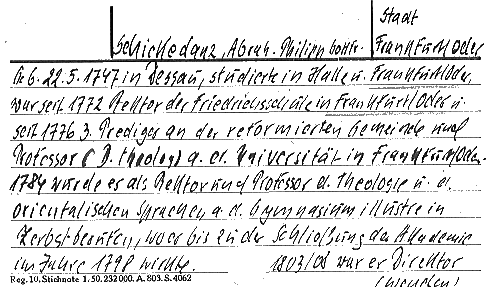 Stadt
Schickedanz, Abrah. Philipp Gottfr. Frankfurt Oder
Geb. 22.5.1747 in Dessau, studierte in Halle u. Frankfurt Oder,
war seit 1772 Rektor der Friedrichsschule in Frankfurt Oder u.
seit 1776 3. Prediger an der reformierten Gemeinde und
Professor (D. theolog.) a. d. Universität in Frankfurt Oder.
1784 wurde er als Rektor und Professor d. Theologie u. d.
orientalischen Sprachen a. d. Gymnasium illustre in
Zerbst berufen, wo er bis zu der Schließung der Akademie
im Jahre 1798 wirkte. 1803/08 war er Direktor
Reg. 10. Stichnote 1. 50. 232000. A. 803. S. 4062